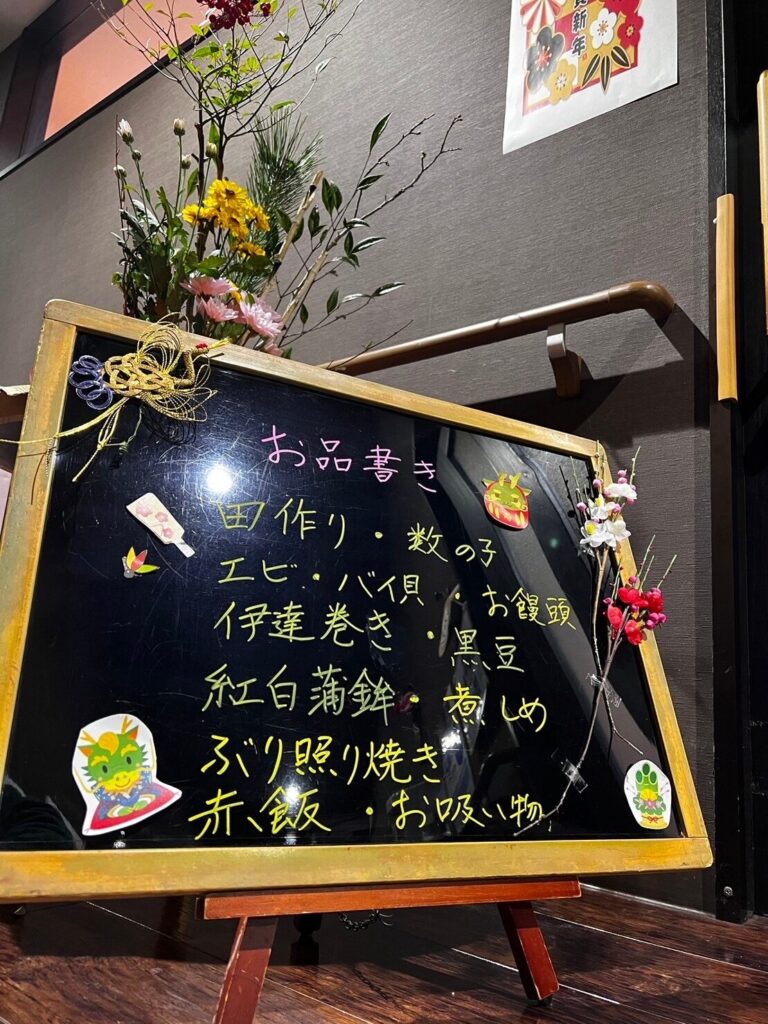 賀新年
お品書き
田作り・数の子
エビ・バイ貝・お饅頭
伊達巻き・黒豆
紅白蒲鉾・煮しめ
ぶり照り焼き
赤飯・お吸い物